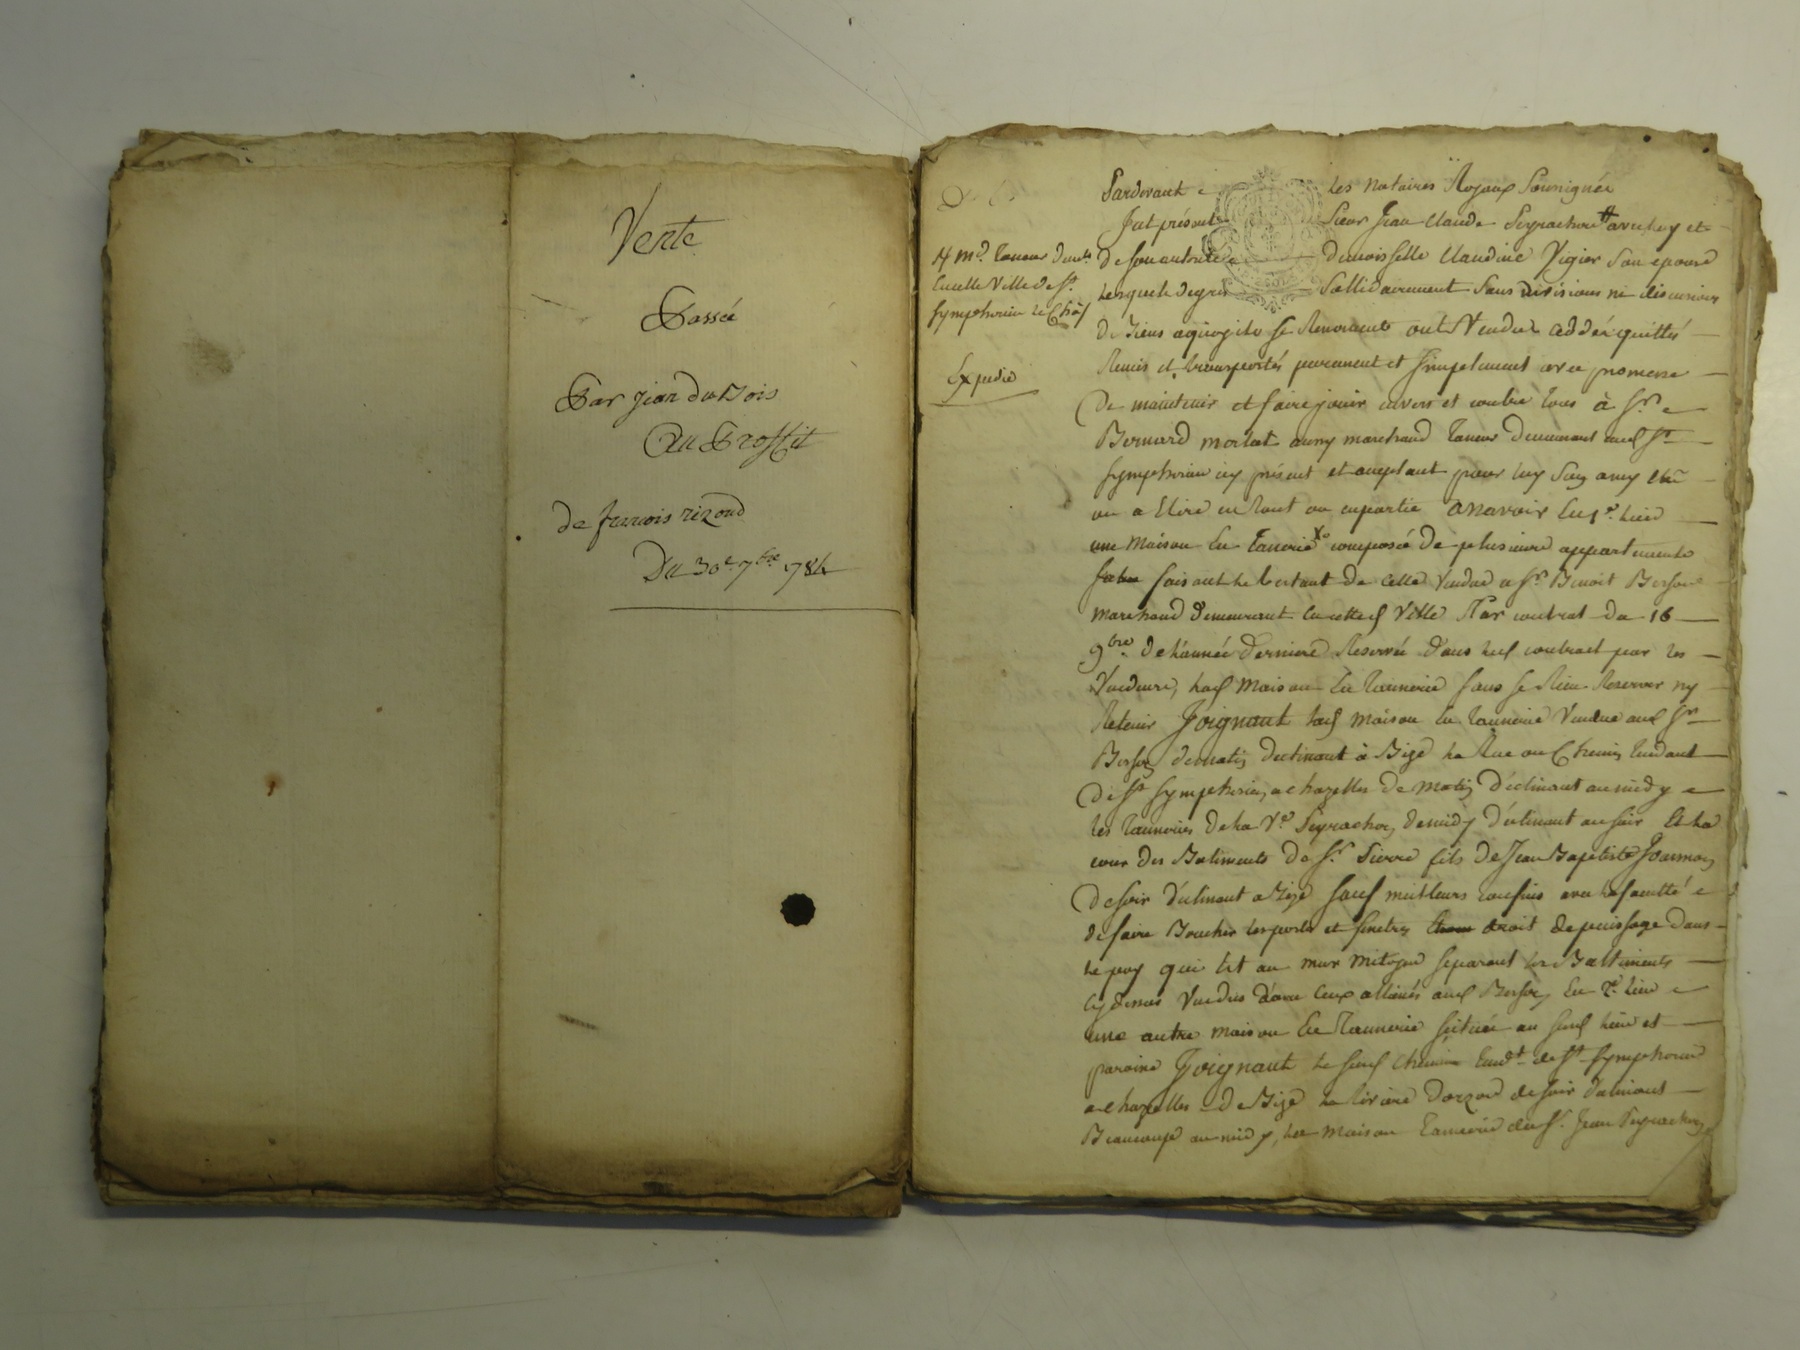 Vente
Passée
Par jean du Bois
Au Proffit
de francois rizoud
Du 30e 7bre 1784
Pardevant les Notaires Royaux Soussignés
fut présent Sieur Jean Claude Peyrachon # avec luy et
# Md. Tanneur demt.
de son autorité demoisselle Claudine Vigier Son épouse
en cette Ville de St.
Lesquels de gré Sollidairement Sans divisions ni discution
Symphorien le Châl
De Biens a quoy ils se Renoncent ont Vendu ceddé quitté
Remis et transportés purement et simplement avec promesse
Expedié
De maintenir et faire jouir envers et contre tous à Sr.
Bernard mortat aussy marchand Taneur demeurant aud. St
Symphorien icy présent et acceptant pour luy Son amy élu
ou a Elire en tout ou en partie assavoir En 1er. Lieu
une Maison En Tannerie composée de plusieurs appartements
faisant le Restant de Celle Vendue a Sr. Benoit
marchand demeurant en cette d. Ville Par contrat du 16
9bre. De L'année derniere Reservée dans led. contract par les
Vendeurs, lad. Maison En Tannerie sans se Rien Reserver ny
Retenir Joignant lad. maison En Tannerie Vendue aud. Sr.
de matin declinant à Bize La Rue ou Chemin tendant
De St. Symphorien a chazelles De matin déclinant au midy
les Tanneries de La Ve. Peyrachon, de midy déclinant au soir Et La
cour des Batiments de Sr. Pierre fils de Jean Baptiste
De soir déclinant a Bize sauf meilleurs confins avec la faculté
de faire Boucher les portes et fenetres droit de puissage dans
le puy qui Est au mur mitoyen separant les Battiments
cy dessus Vendus d'avec Ceux alliénés aud. En 2e. Lieu
une autre maison En Tannerie scituée au susd. Lieu et
paroisse Joignant le susd. chemin tendt. de St. Symphorien
a chazelles De Bize La Riviere de soir declinant
Beaucoup au midy, La Maison Tannerie du Sr. Jean Peyrachon